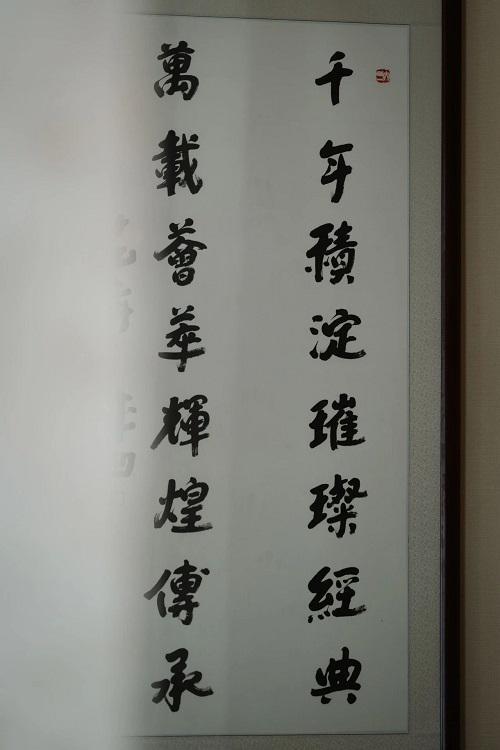 千年積淀璀璨經典
萬載薈萃輝煌傳承